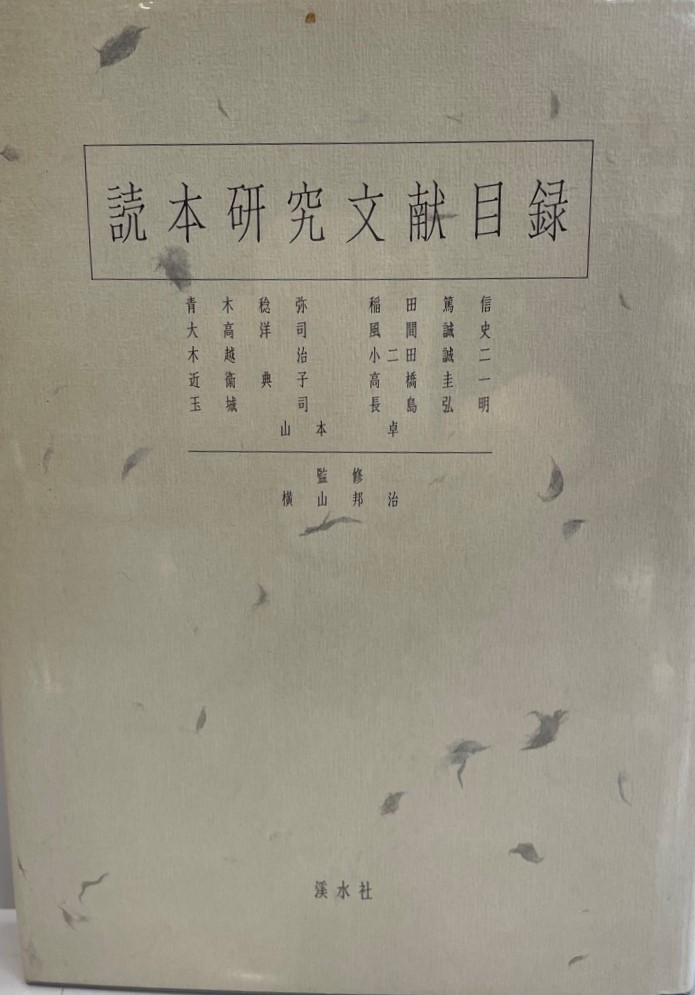 読本研究文献目録
青木稔弥 稲田篤信
大高洋司 風間誠史
木越治 小二田誠二
近衛典子 高橋圭一
玉城司 長島弘明
山本卓
監修
横山邦治
溪水社